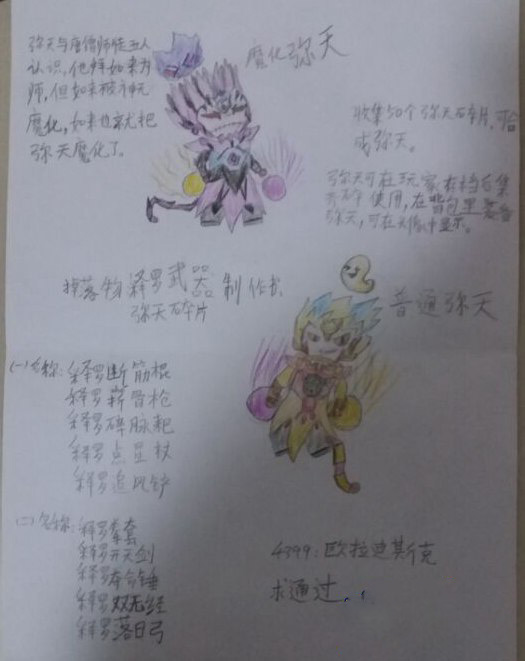 弥天与唐僧师徒五人
认识，他拜如来为
师，但如来被神无
魔化，如来也就把
弥天魔化了。
魔化弥天
收集50个弥天碎片，可合
成弥天。
弥天可在玩家
使用，在背包里装备
弥天，可在头像中显示。
掉落物 释罗武器制作书
弥天碎片
普通弥天
(一)名称：释罗断筋棍
释罗崭骨枪
释罗碎脉耙
释罗点星杖
释罗追此铲
(二)名称：释罗拳套
释罗开天剑
释罗夺命锤
释罗双无经
释罗落日弓
4399：欧拉迪斯克
求通过..